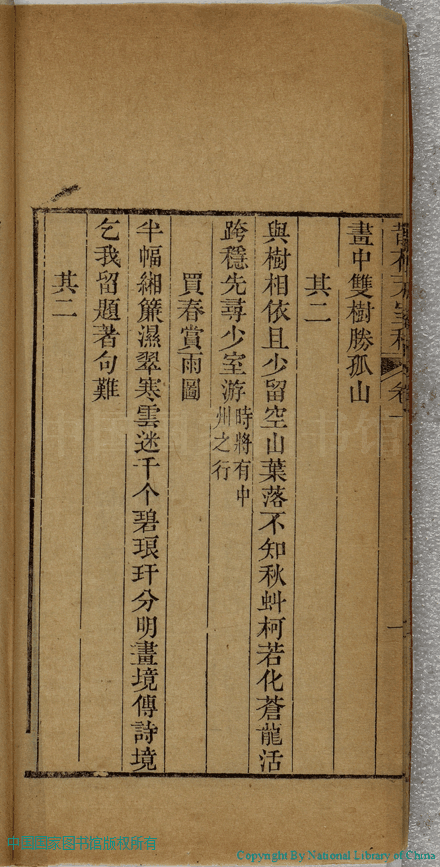 畫中雙樹勝孤山
其二
與樹相依且少留空山葉落不知秋虯柯若化蒼龍活
跨穩先尋少室游時將有中州之行
買春賞雨圖
半幅緗簾濕翠寒雲迷千个碧琅玕分明畫境傳詩境
乞我留題著句難
其二
中国国家图书馆版权所有
Copyright By National Library of China